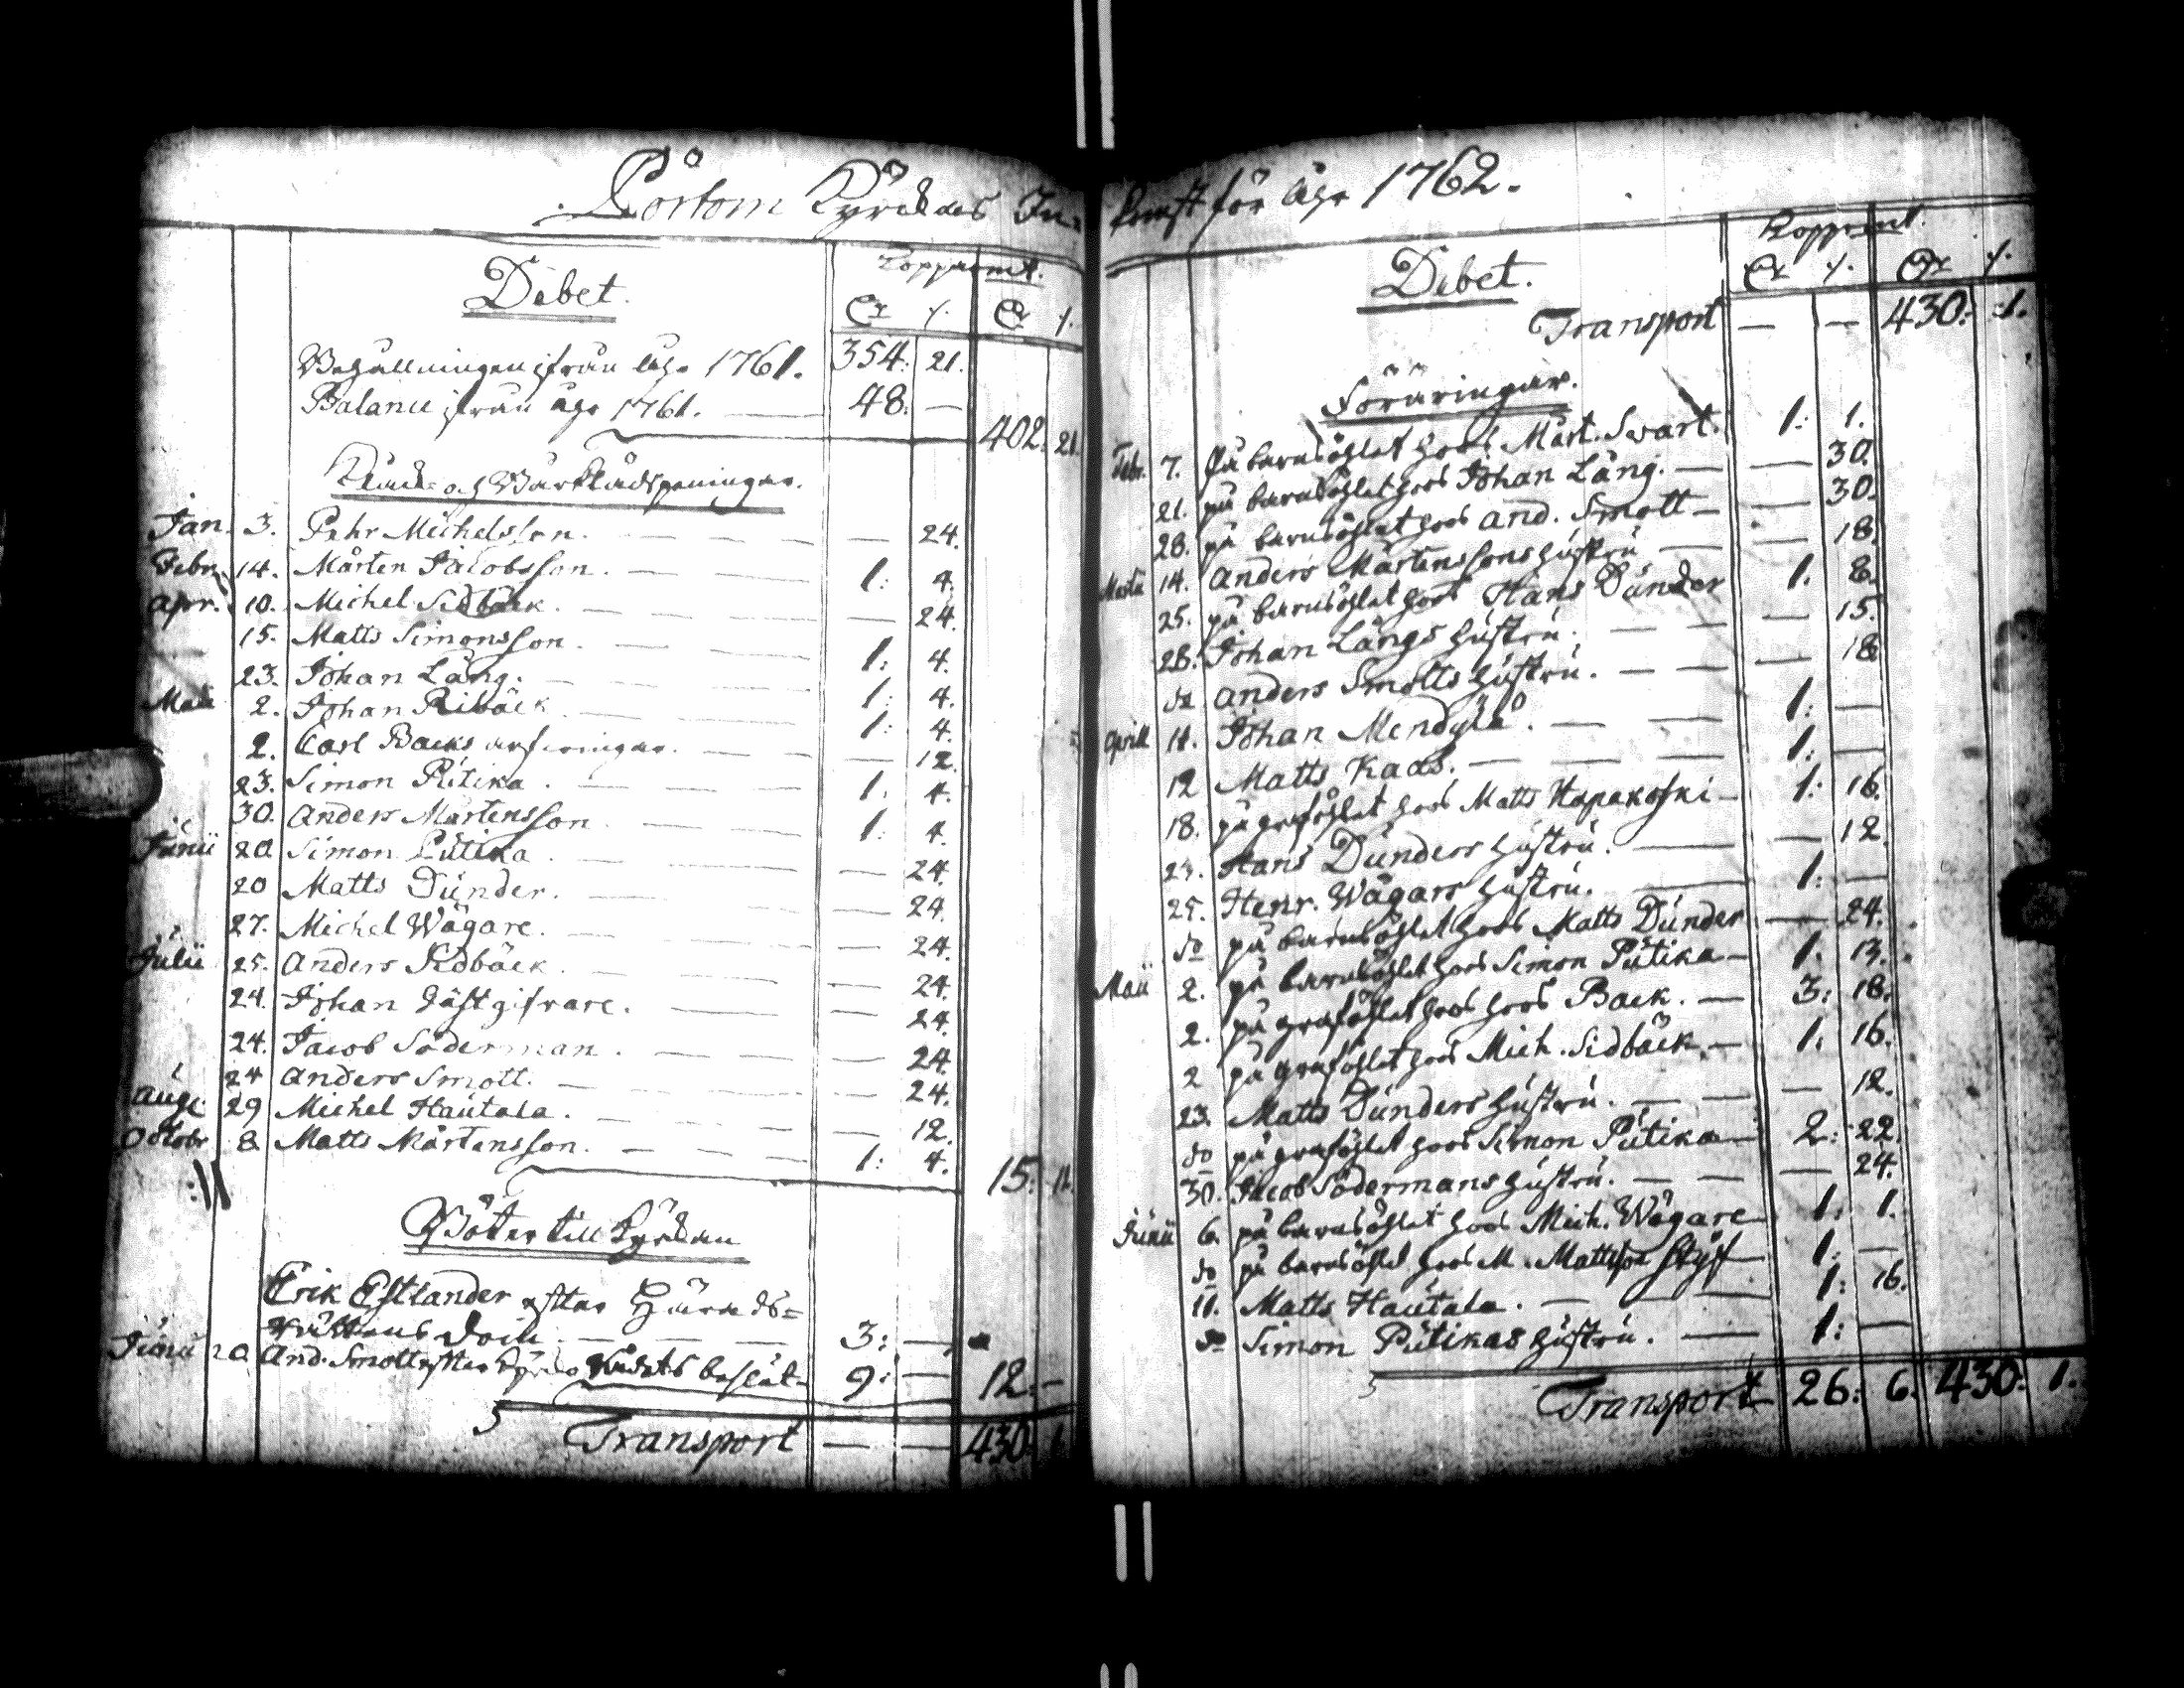 Pörtom Kyrckas In-
Debet.
Kopparmt.
Dr /. Dr /.
Behållningen ifrån åhr 1761. 354: 21.
Balance ifrån åhr 1761. — 48. —
402: 21.
och Bårklädspeningar.
Jan. 3. Pehr Michelsson. — 24.
Febr. 14. Mårten Jacobsson. 1: 4.
Apr. 10. Michel Sidbäck. — 24.
15. Matts Simonsson. 1: 4.
23. Johan Lång. 1: 4.
Maii 2. Johan Ribäck 1: 4.
2. Carl Backs arfvingar. — 12.
23. Simon Pütika. 1. 4.
30. Anders Mårtensson 1: 4.
Junii 20 Simon Pütika — 24.
20 Matts Dunder. — 24.
27. Michel Wägare. — 24.
Julii 25. Anders Sidbäck — 24.
24. Johan Gästgifvare. — 24.
24. Jacob Söderman. — 24.
24 Anders Smott. — 24.
Aug. 29 Michel Hautala. — 12.
Octobr 8. Matts Mårtensson. 1: 4.
15: 11.
Böter till Kyrckan
Erik Estlander efter Härads=
Rättens dom. — 3: —
Junii 20 And. Smott efter Kyrcko Rådets beslut — 9: — 12: —
Transport — — 430: 1.
komst för Åhr 1762.
Debet.
Kopparmt.
Dr /. Dr /.
Transport — — 430: 1.
Föräringar.
Febr. 7. På barnsöhlet hos Mårt. Svart. 1: 1.
21. på barnsöhlet hos Johan Lång. — 30.
28. på barnsöhlet hos And. Smott — 30.
Martii 14. Anders Mårtenssons hustru — 18.
25. på barnsöhlet hos Hans Dunder 1. 8.
28. Johan Långs hustru. — 15.
do Anders Smotts hustru. — 18
Aprill 11. Johan Mendylä. 1: —
12 Matts Kads. 1: —
18. på grafölet hos Matts Hapakoski — 1: 16.
23. Hans Dunders hustru. — 12.
25. Henr. Wägars hustru. 1: —
do på barnsöhlet hos Matts Dunder — 24.
Maii 2. på barnsöhlet hos Simon Pütika — 1. 13.
2. på grafölet hos hos Back. — 3: 18.
2 på grafölet hos Mich. Sidbäck. — 1: 16.
23. Matts Dunders hustru. — 12.
do på grafölet hos Simon Pütika — 2: 22.
30. Jacob Södermans hustru. — 24.
Junii 6. på barnsöhlet hos Mich. Wägare 1: 1.
do på barnsöhlet hos M. Mattsson 1: —
11. Matts Hautala. — 1: 16.
do Simon Pütikas hustru. — 1: —
Transport 26: 6. 430: 1.